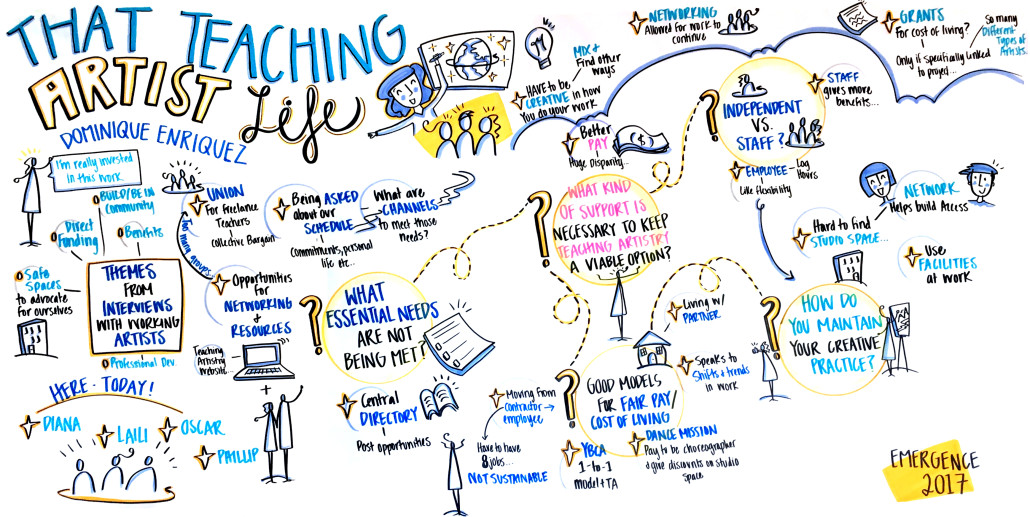 THAT TEACHING
ARTIST Life
DOMINIQUE ENRIQUEZ
I'm really invested
in this work
BUILD/BE IN
community
Direct
Funding
Benefits
Safe
SPACES
to advocate
for ourselves
THEMES
FROM
INTERVIEWS
WITH WORKING
ARTISTS
Professional Dev
HERE · TODAY!
DIANA
LAILI
OSCAR
PHILLIP
UNION
For freelance
Teachers
Collective Bargain
Too many groups
Opportunities
for
NETWORKING
+
RESOURCES
Teaching
Artistry
Website...
+
Being ASKED
about our
SCHEDULE
Commitments, personal
life etc...
What are
CHANNELS
to meet those
Needs?
? WHAT
ESSENTIAL NEEDS
ARE NOT
BEING MET?
Central
DIRECTORY
Post opportunities
Moving from
contractor →
employee
Have to have
8 jobs...
NOT SUSTAINABLE
HAVE to be
CREATIVE in how
You do your work
MIX +
Find other
ways
NETWORKING
Allowed for work to
continue
GRANTS
For cost of living?
Only if specifically linked
to project...
So many
Different
Types of
Artists...
Better
PAY
Huge Disparity...
$
? WHAT KIND
OF SUPPORT IS
NECESSARY TO KEEP
TEACHING ARTISTRY
A VIABLE OPTION?
? INDEPENDENT
VS.
STAFF?
STAFF
gives more
benefits...
EMPLOYEE - Log
Hours
Like flexibility
NETWORK
Helps build Access
Hard to find
STUDIO SPACE...
Use
FACILITIES
at work
? HOW DO
YOU MAINTAIN
YOUR CREATIVE
PRACTICE?
Living w/
PARTNER
Speaks to
Shifts + trends
in work
? GOOD MODELS
FOR FAIR PAY/
COST OF LIVING
YBCA
1-to-1
model + TA
DANCE MISSION
Pay to be choreographer
+ give discounts on studio
space
EMERGENCE
2017